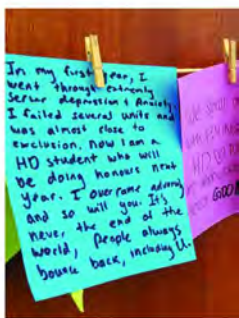 In my first year, I
went through extremely
sever depression & Anxiety.
I failed several units and
was almost close to
exclusion. now I am a
HD student who will
be doing honours next
year. I overcame adversity
and so will you. It's
never the end of the
world, People always
bounce back, including U.